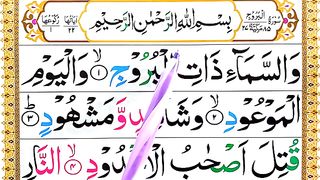 بِسْمِ اللّٰهِ الرَّحْمٰنِ الرَّحِيْمِ
وَالسَّمَآءِ ذَاتِ الْبُرُوْجِ ۙ﴿۱﴾ وَالْيَوْمِ
الْمَوْعُوْدِ ۙ﴿۲﴾ وَشَاهِدٍ وَّ مَشْهُوْدٍ ؕ﴿۳﴾
قُتِلَ اَصْحٰبُ الْاُخْدُوْدِ ۙ﴿۴﴾ النَّارِ